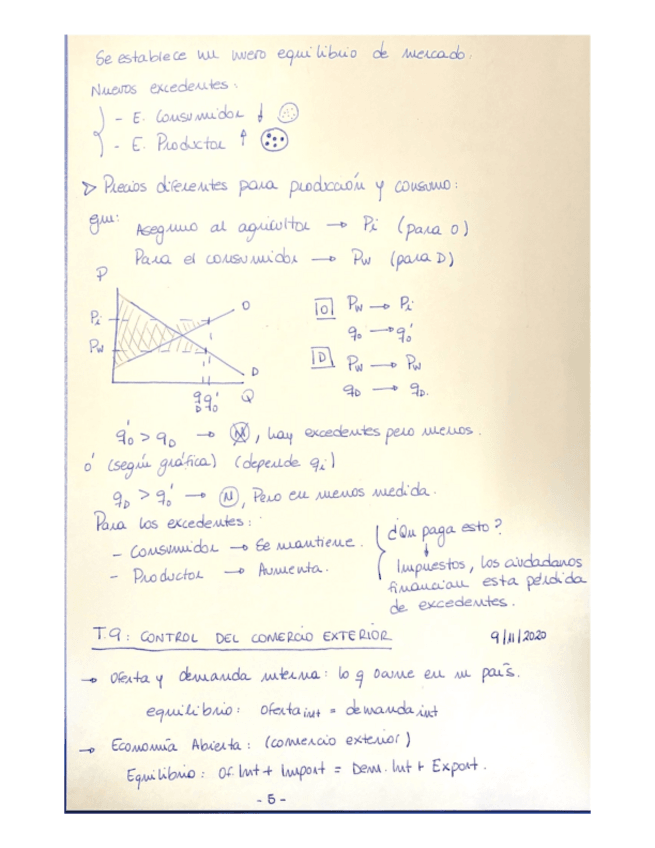 Se establece un nuevo equilibrio de mercado.
Nuevos excedentes:
- E. Consumidor ↓
- E. Productor ↑
> Precios diferentes para producción y consumo:
Aseguro al agricultor → Pi (para O)
Para el consumidor → Pw (para D)
P
O
Pi
Pw
D
q q'
D O
Q
O Pw → Pi
qo → qo'
D Pw → Pw
qD → qD.
qo' > qD → M, hay excedentes pero menos.
ó (según gráfica) (depende qi)
qD > qo' → M, Pero en menos medida.
Para los excedentes:
- Consumidor → Se mantiene.
- Productor → Aumenta.
¿Qu paga esto?
↓
Impuestos, los ciudadanos
financian esta pérdida
de excedentes.
T.9: CONTROL DEL COMERCIO EXTERIOR 9/11/2020
→ Oferta y demanda interna: lo q ocurre en un país.
equilibrio: Oferta int = demanda int
→ Economía Abierta: (comercio exterior)
Equilibrio: Of. Int + Import = Dem. Int + Export.
- 5 -